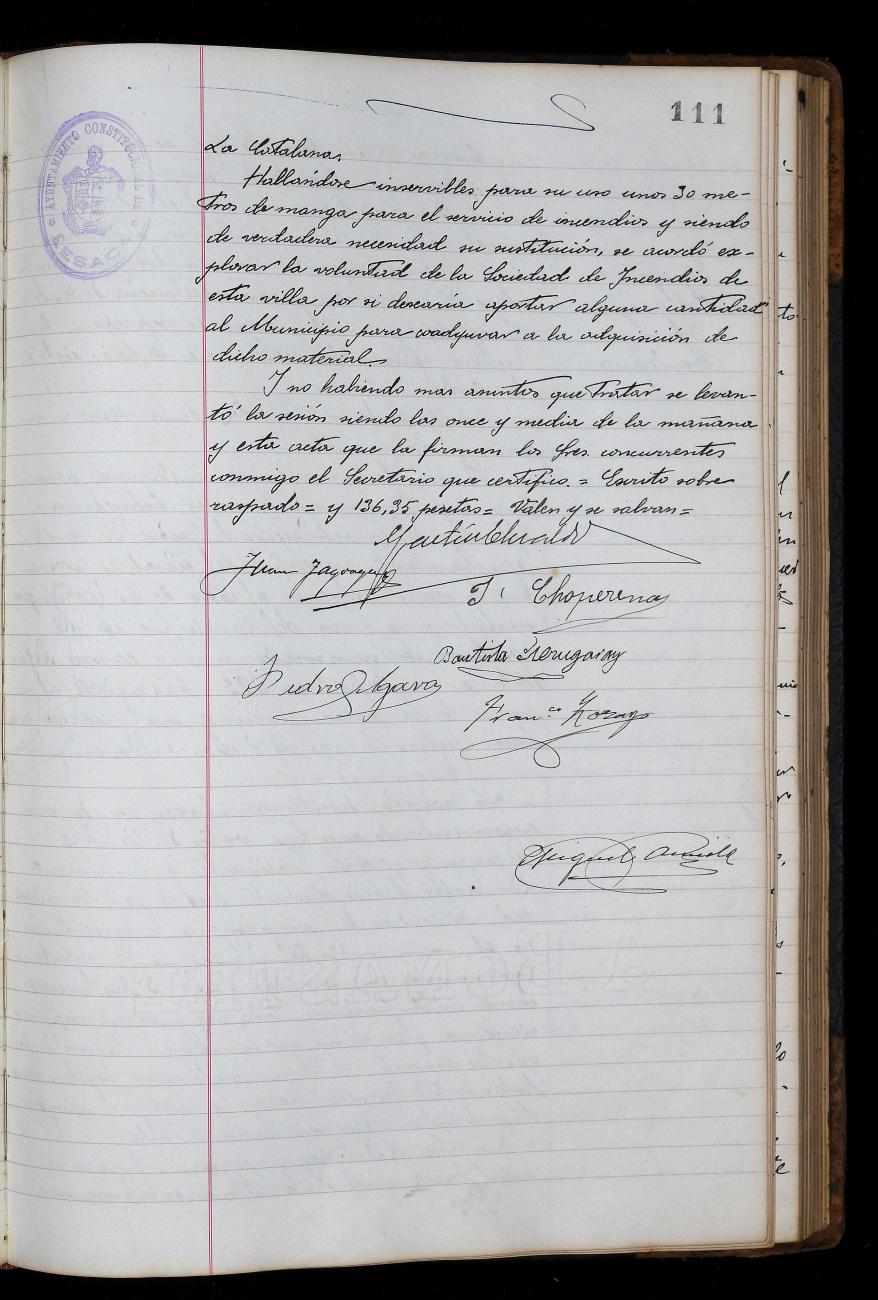 111
AYUNTAMIENTO CONSTITUCIONAL DE
LESACA
La Catalana.
Hallándose inservibles para su uso unos 30 me-
tros de manga para el servicio de incendios y siendo
de verdadera necesidad su sustitución, se acordó ex-
plorar la voluntad de la Sociedad de Incendios de
esta villa por si desearía aportar alguna cantidad
al Municipio para coadyuvar a la adquisición de
dicho material.
Y no habiendo mas asuntos que tratar se levan-
tó la sesión siendo las once y media de la mañana
y esta acta que la firman los Sres. concurrentes
conmigo el Secretario que certifico. = Escrito sobre
raspado = y 136,35 pesetas = Valen y se salvan =
Martín
Juan
Choperena
Bautista
Pedro
Fran.co
Miguel